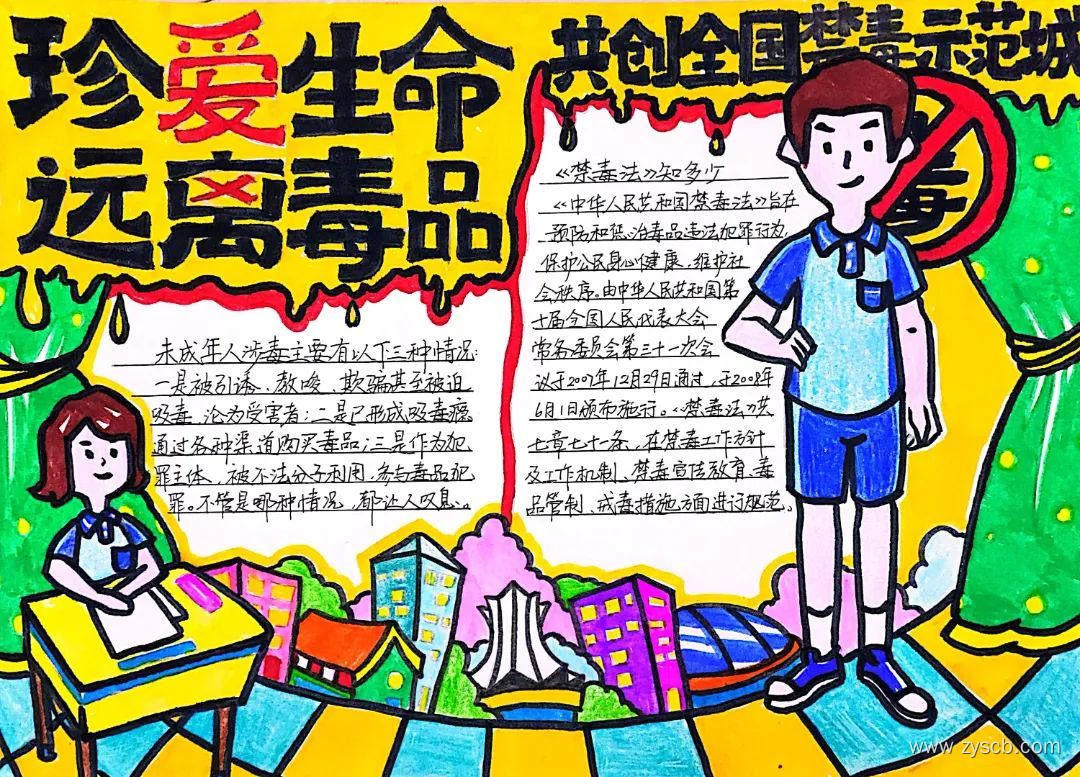 珍爱生命
远离毒品
共创全国禁毒示范城
禁毒
未成年人涉毒主要有以下三种情况:
一是被引诱、教唆、欺骗甚至被迫
吸毒,沦为受害者;二是已形成吸毒瘾
通过各种渠道购买毒品;三是作为犯
罪主体,被不法分子利用,参与毒品犯
罪。不管是哪种情况,都让人叹息。
《禁毒法》知多少
《中华人民共和国禁毒法》旨在
预防和惩治毒品违法犯罪行为,
保护公民身心健康,维护社
会秩序。由中华人民共和国第
十届全国人民代表大会
常务委员会第三十一次会
议于2007年12月29日通过,于2008年
6月1日颁布施行。《禁毒法》共
七章七十一条,在禁毒工作方针
及工作机制、禁毒宣传教育、毒
品管制、戒毒措施方面进行规范。
www.zyscb.com